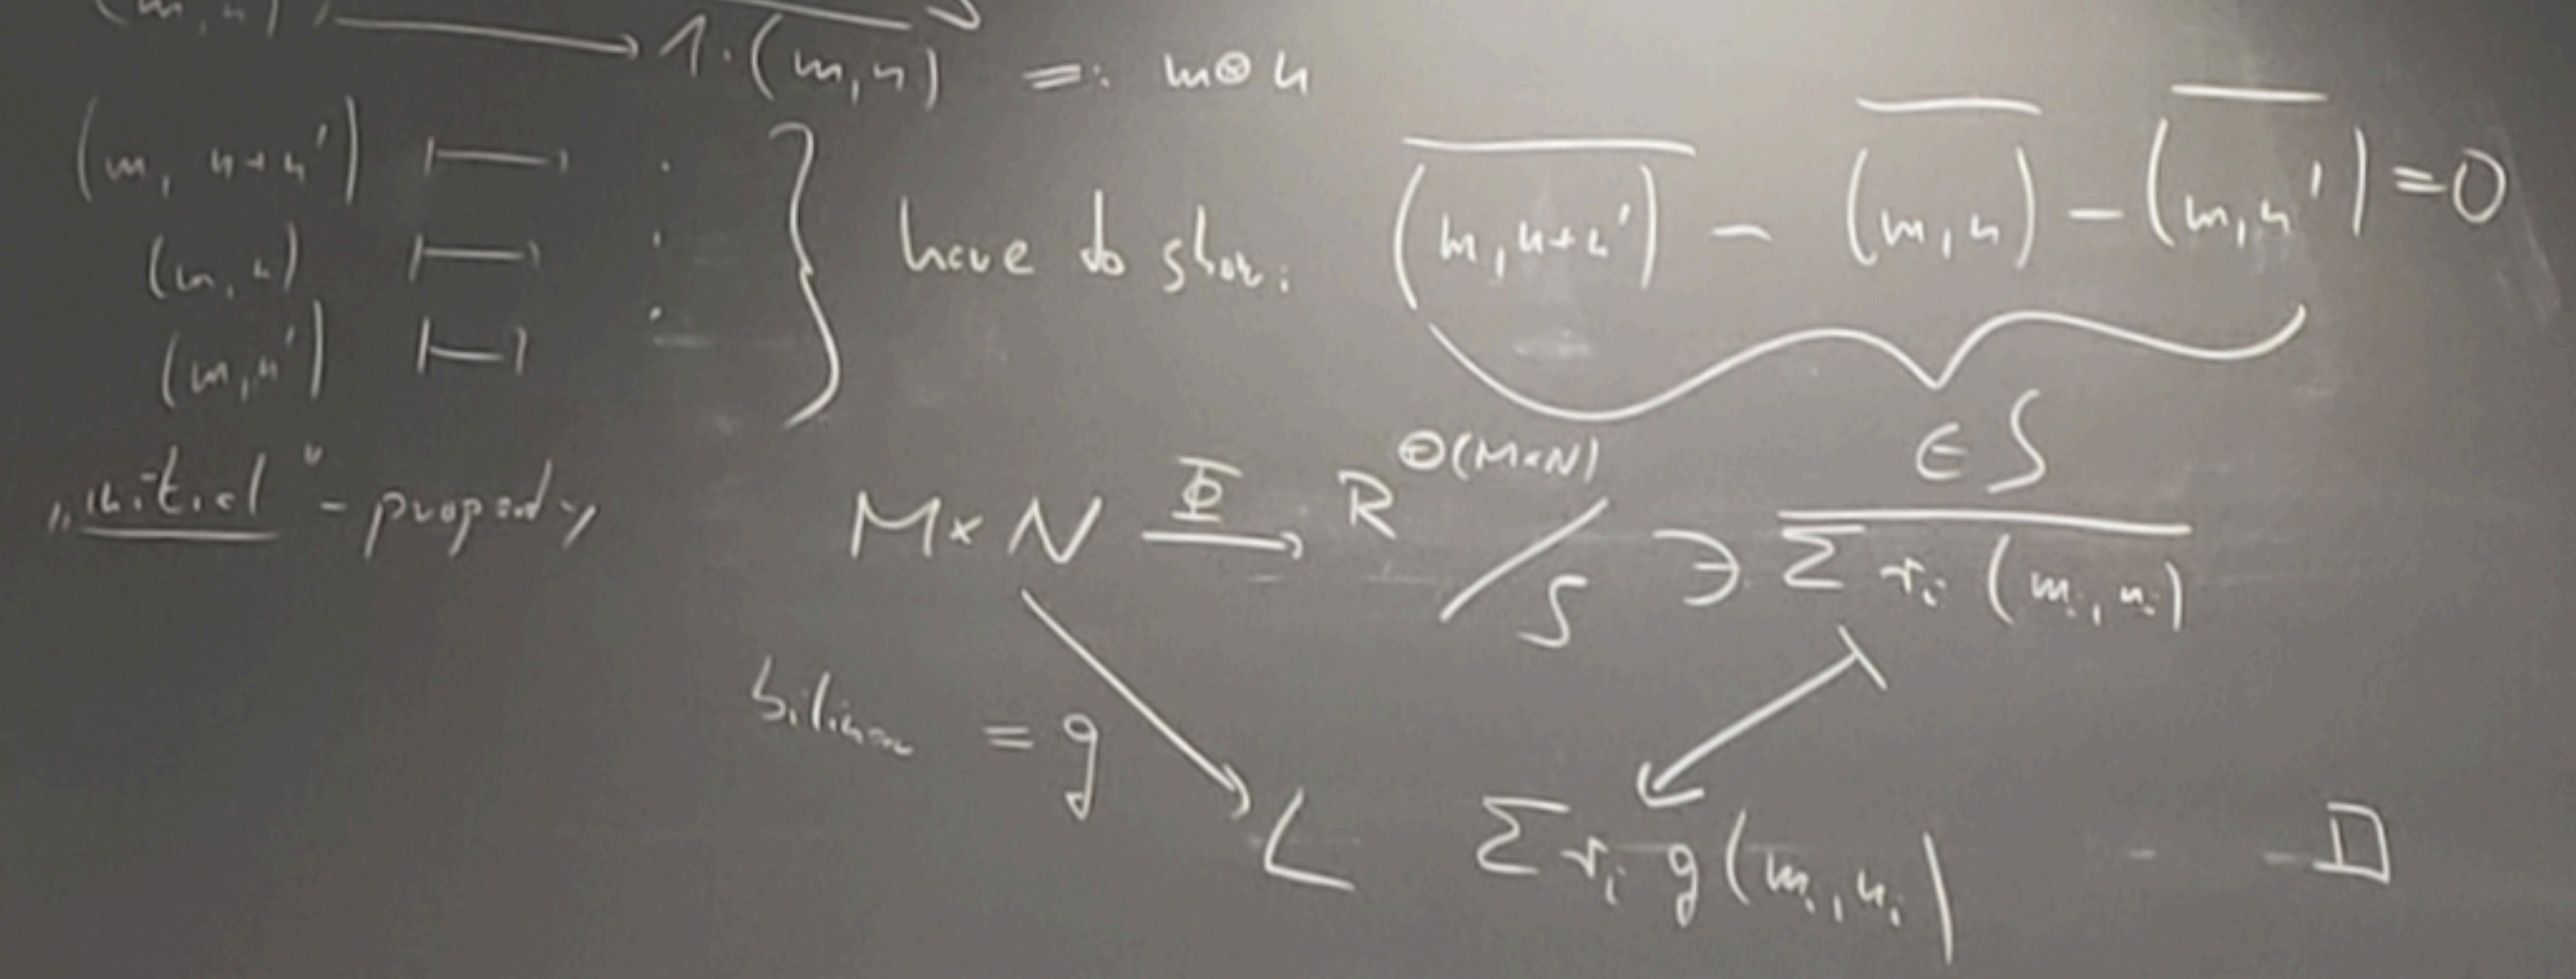 (m,n) ⟼ 1·(m,n) =: m⊗n
(m, n+n') ⟼ .
(m,n) ⟼ .
(m,n') ⟼ .
have to show: (m,n+n') − (m,n) − (m,n') = 0
∈ S
„initial" - property
M×N Φ→ R^⊕(M×N) / S ∋ Σ rᵢ (mᵢ,nᵢ)
bilinear = g
L Σ rᵢ g(mᵢ,nᵢ) □